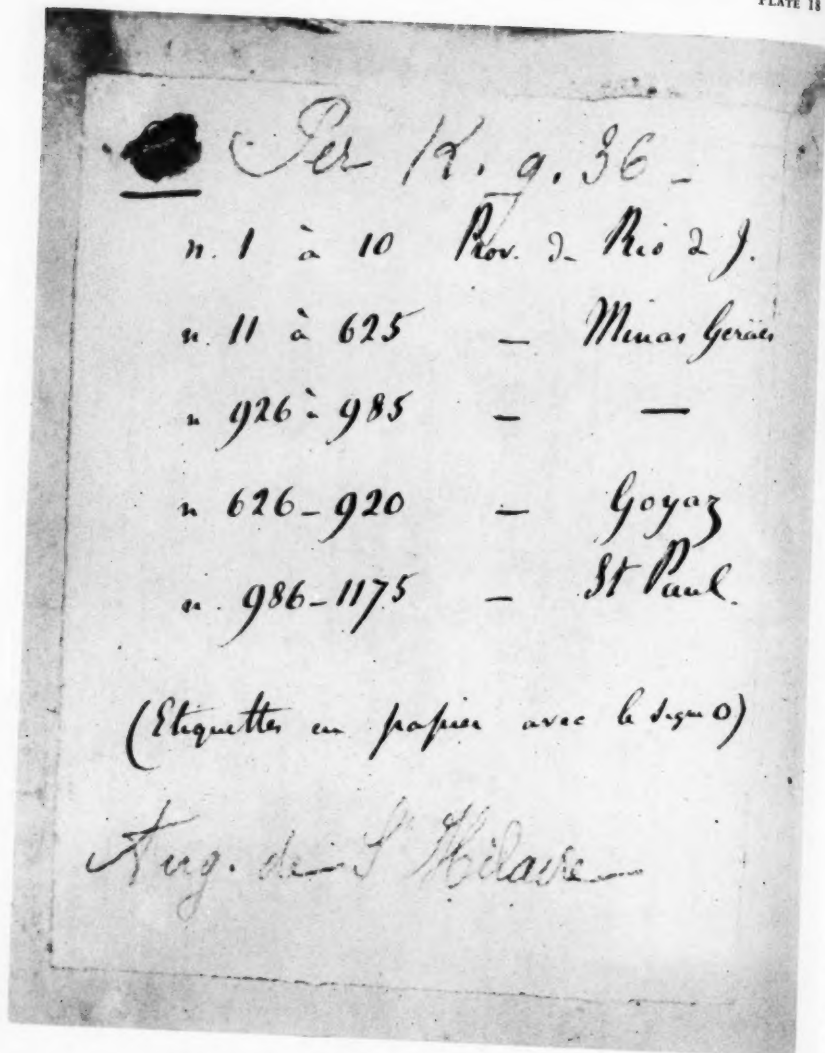 PLATE 18
Per K. g. 36 -
n. 1 à 10 Prov. de Rio de J.
n. 11 à 625 — Minas Geraës
n 926 à 985 — —
n 626-920 — Goyaz
n. 986-1175 — St Paul.
(Etiquettes en papier avec le signe O)
Aug. de St Hilaire